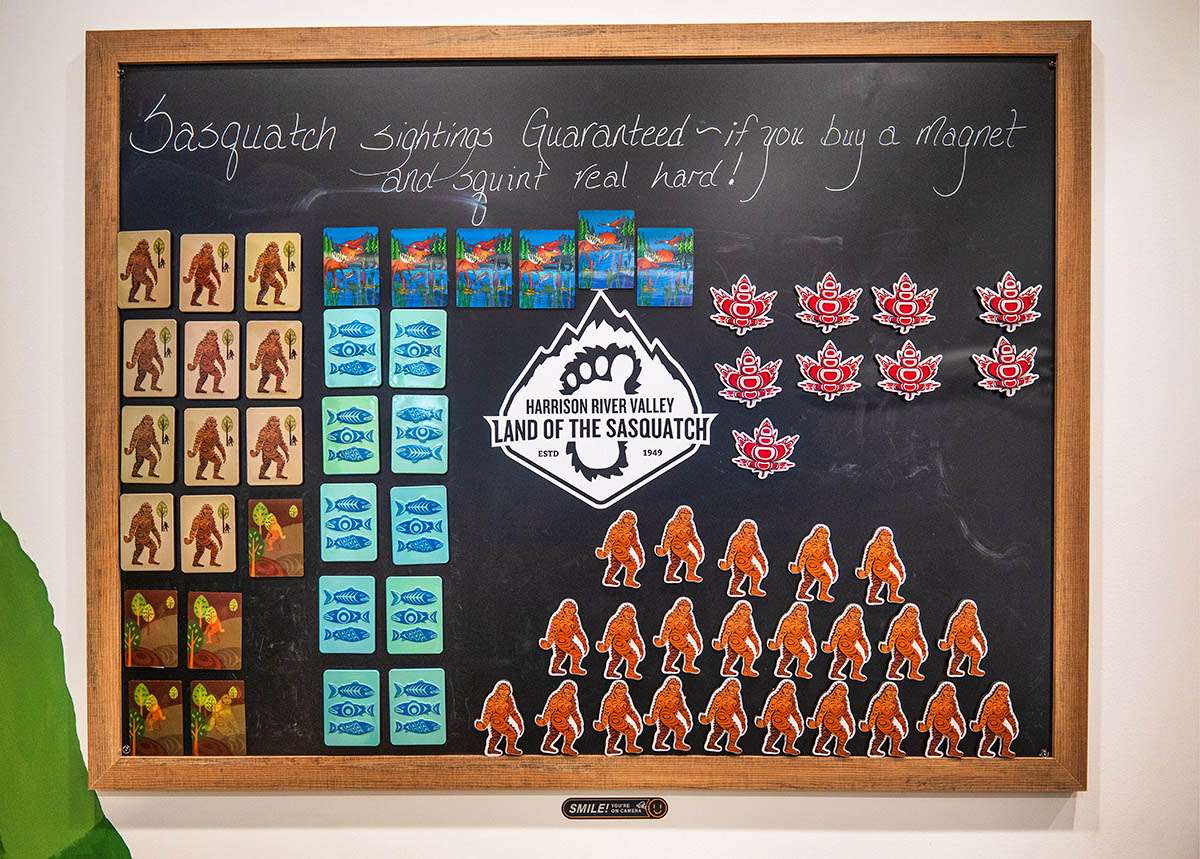 Sasquatch sightings Guaranteed ~ if you buy a Magnet
and squint real hard!
HARRISON RIVER VALLEY
LAND OF THE SASQUATCH
ESTD 1949
SMILE! YOU'RE
ON CAMERA